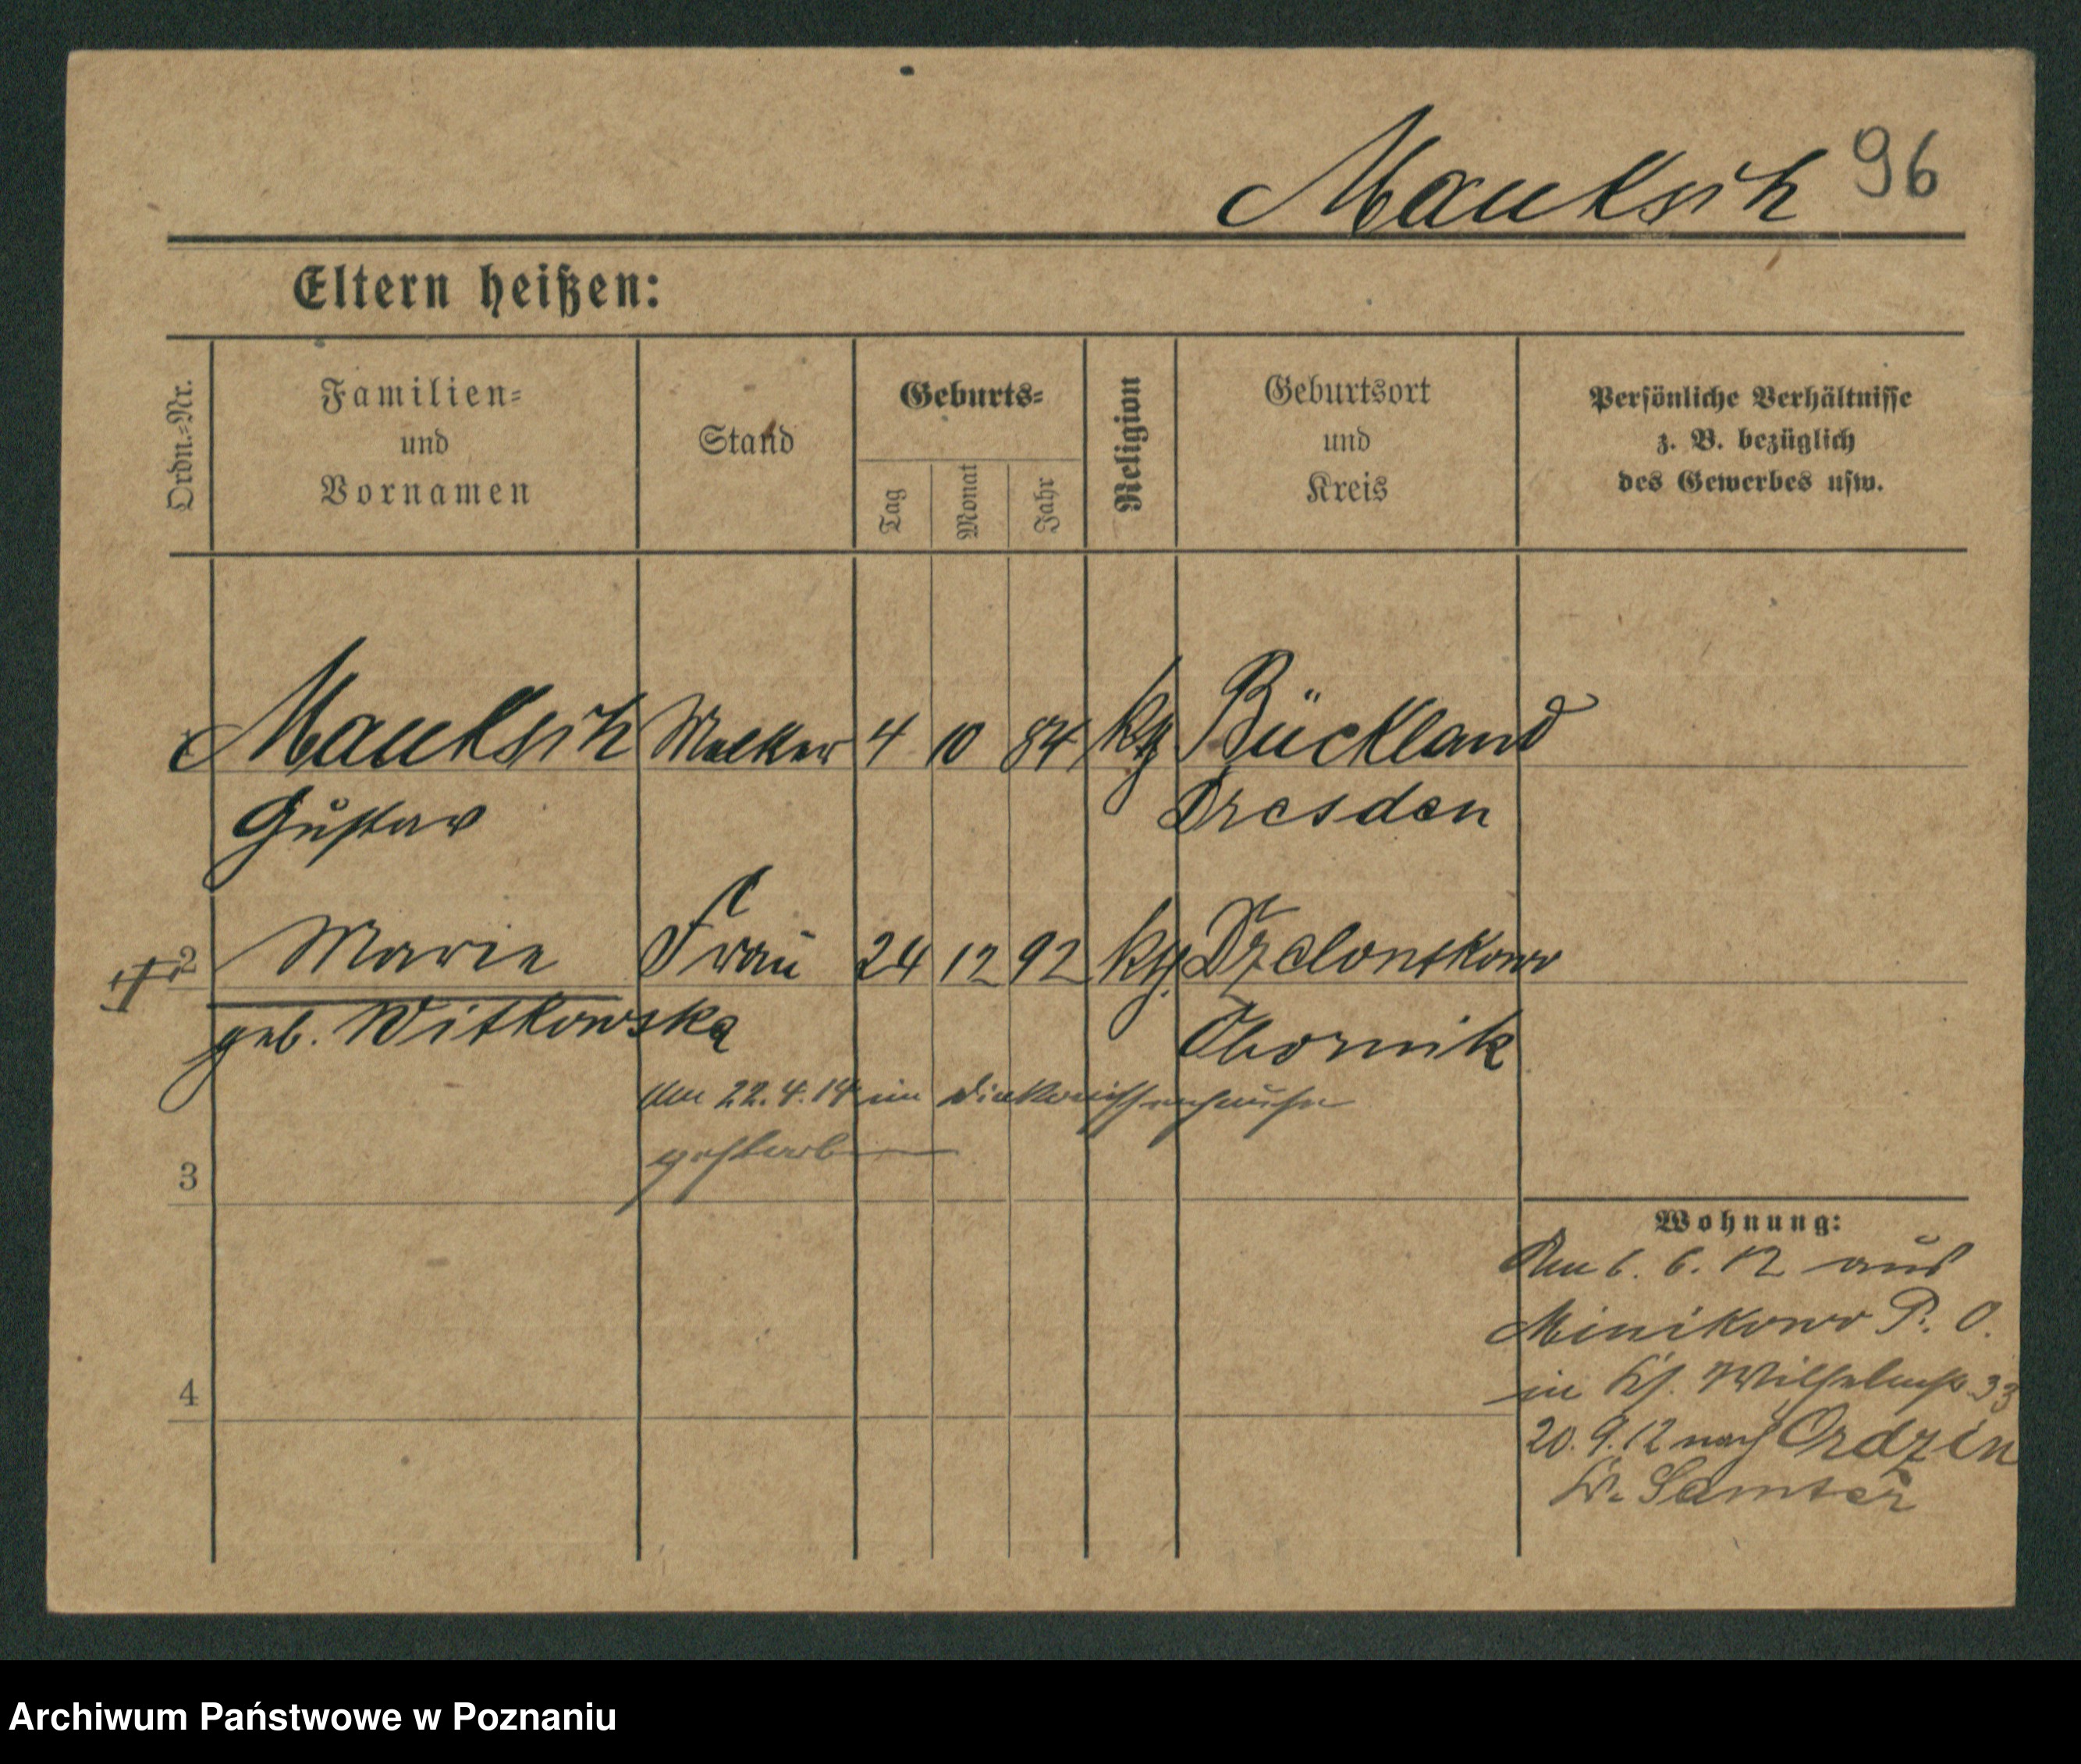 Mauksch 96
Eltern heißen:
Ordn.=Nr.
Familien=
und
Vornamen
Stand
Geburts=
Tag
Monat
Jahr
Religion
Geburtsort
und
Kreis
Persönliche Verhältnisse
z. B. bezüglich
des Gewerbes usw.
Mauksch Melker 4 10 84 Bückland
Gustav Dresden
2 Marie Frau 24 12 92 Dzelontkowo
geb. Witkowska Obornik
Am 22.4.14 im Diakonissenhause
gestorben
3
Wohnung:
Am 6. 6. 12 aus
Minikowo P. O.
in Wilhelmstr 33
4
20. 9. 12 nach Ordzin
Kr. Samter
Archiwum Państwowe w Poznaniu